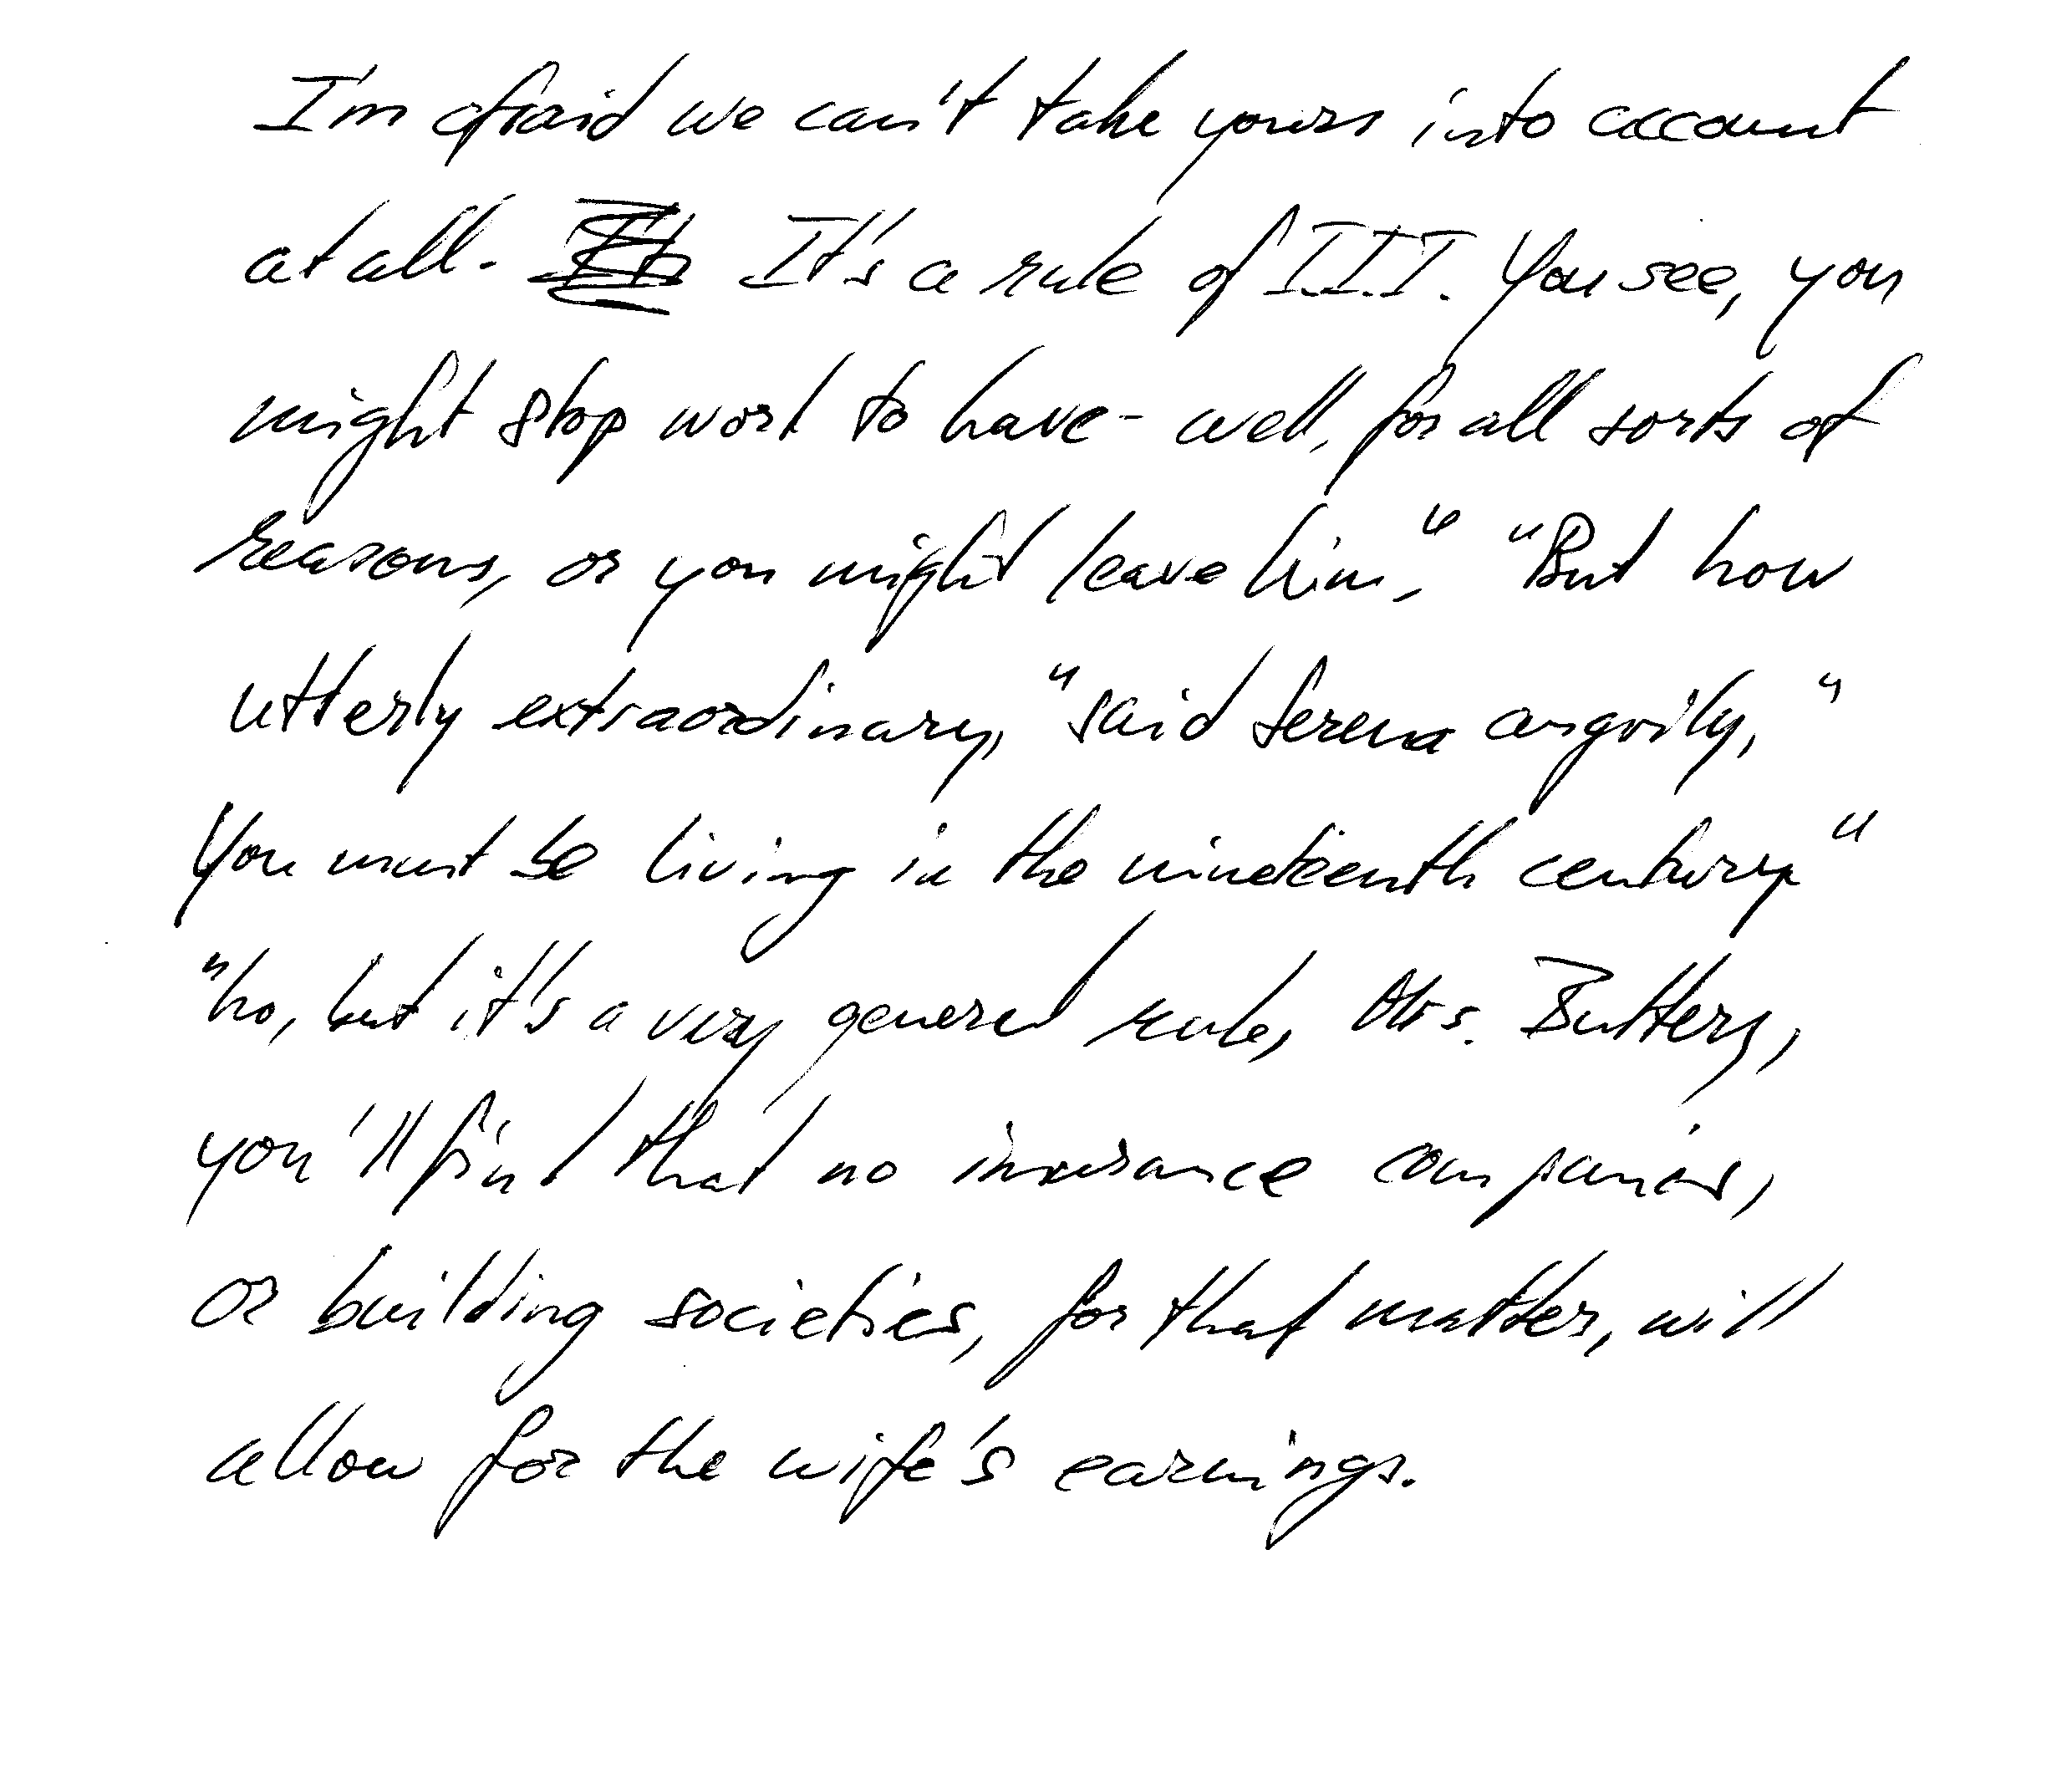 I'm afraid we can't take yours into account
at all. It's a rule of I.I.I. You see, you
might stop work to have - well, for all sorts of
reasons, or you might leave him." "But how
utterly extraordinary," said Serena angrily, "
You must be living in the nineteenth century"
"No, but it's a very general rule, Mrs. Buttery,
you'll find that no insurance companies,
or building societies, for that matter, will
allow for the wife's earnings.